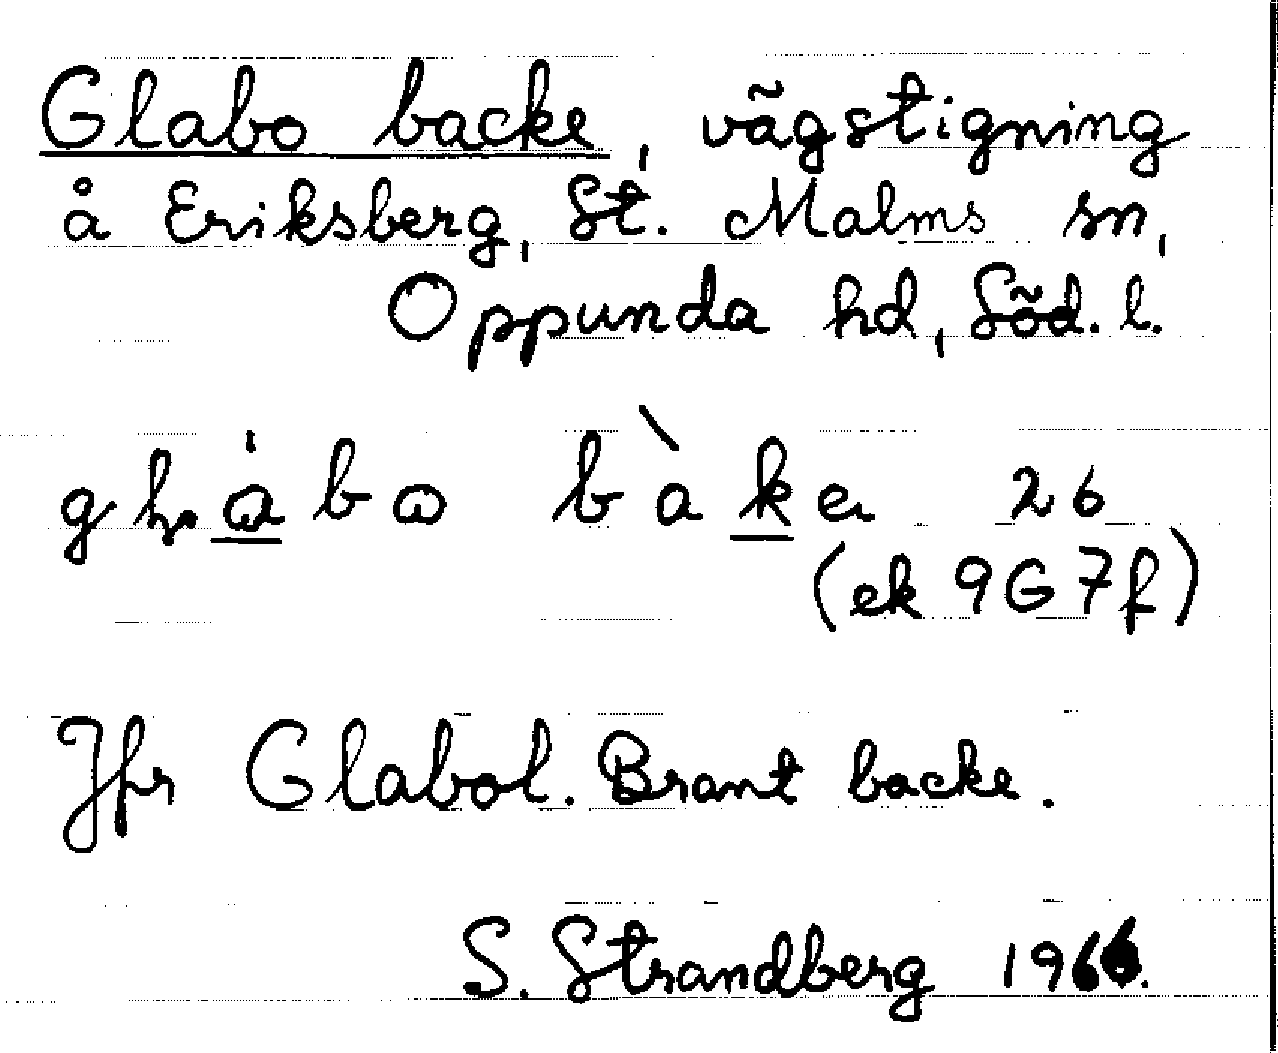 Glabo backe, vägstigning
å Eriksberg, St. Malms sn,
Oppunda hd, Söd. l.
bàkeɹ 26
(ek 9G7f)
Jfr Glabol. Brant backe.
S. Strandberg 1966.